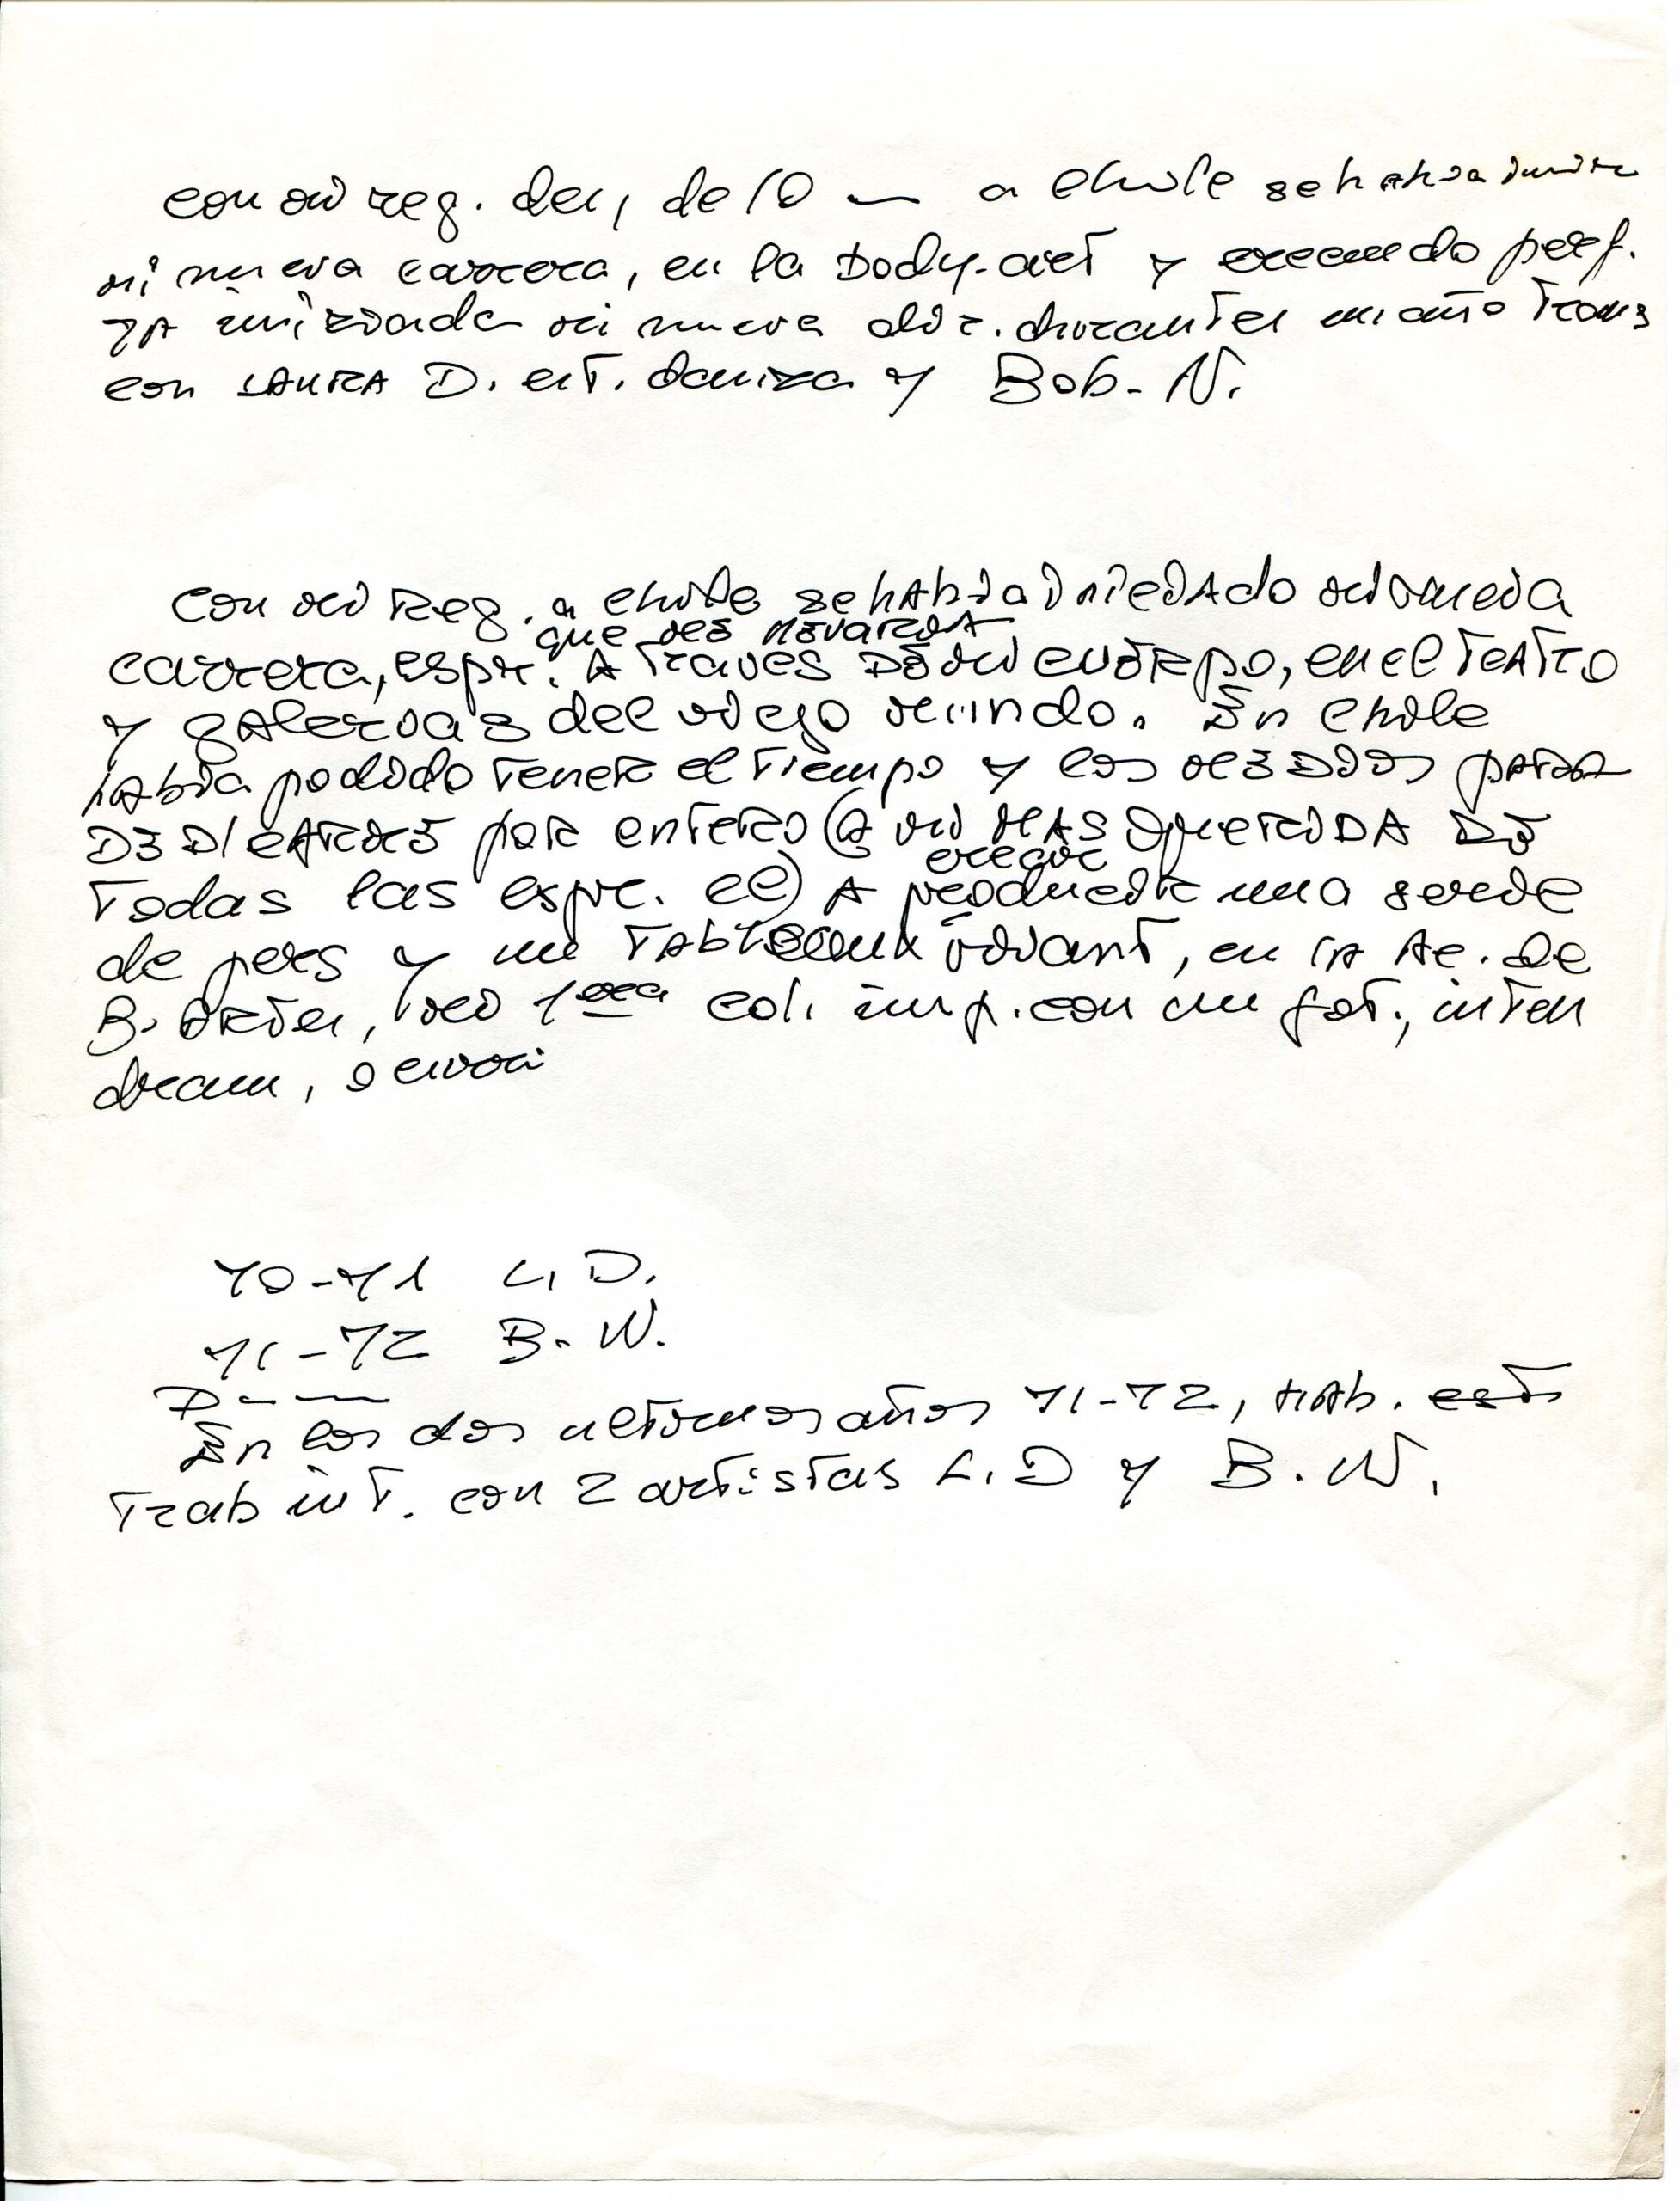 con mi reg. de 10 — a chile se habia
mi nueva carrera, en la Body-art y creando perf.
ya iniziada mi nueva dir. durante un año
con LAURA D. est. danza y Bob - W.
con mi Reg. a chile se hAbia iniciAdo mi nueva
que me llevaría
carrera, espr. A traves DE mi cuerpo, en el TeATro
y gAlerias del viejo mundo. En chile
habia podido tener el tiempo y los medios para
DEDICARME por entero (a mi MAS querida DE
crear
Todas las espr. cc) A producir una serie
de pers y un Tableaux vivant, en la Ac. de
B. Artes, mi 1era col. imp. con un fot.,
70-71 L. D.
71-72 B. W.
D- —
En los dos ultimos años 71-72, HAb.
Trab int. con 2 artistas L. D y B. W.